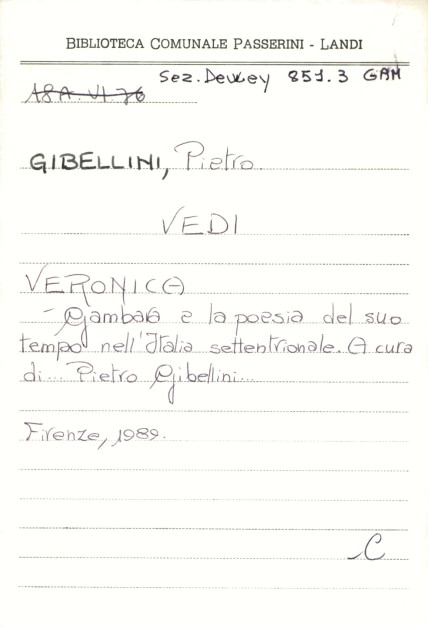 BIBLIOTECA COMUNALE PASSERINI - LANDI
Sez. Dewey 851.3 GAM
18A. VI. 76
GIBELLINI, Pietro.
VEDI
VERONICA
- Gambara e la poesia del suo
tempo nell'Italia settentrionale. A cura
di... Pietro Gibellini...
Firenze, 1989.
C